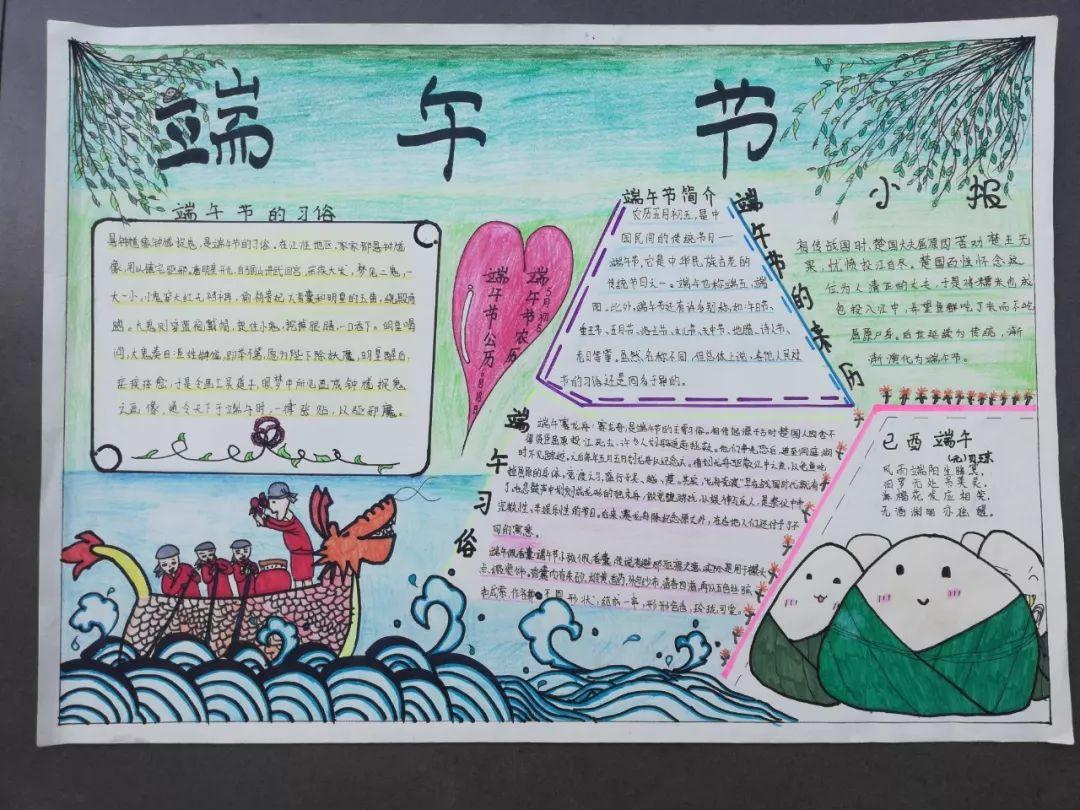 端午节
小报
端午节的习俗
悬钟馗像:钟馗捉鬼,是端午节的习俗。在江淮地区,家家都悬钟馗
像,用以镇宅驱邪。唐明皇开元,自骊山讲武回宫,疟疾大发,梦见二鬼,一
大一小,小鬼穿大红无裆裤,偷杨贵妃之香囊和明皇的玉笛,绕殿而
跑。大鬼则穿蓝袍戴帽,捉住小鬼,挖掉眼睛,一口吞下。明皇喝
问,大鬼奏曰:臣姓钟馗,即武举,愿为陛下除妖魔,明皇醒后,
疟疾痊愈,于是令画工吴道子,照梦中所见画成钟馗捉鬼
之画像,通令天下于端午时,一律张贴,以驱邪魔。
端午节公历:6月18日
端午节农历
5月初5
端午节简介
农历五月初五,是中
国民间的传统节日——
端午节,它是中华民族古老的
传统节日之一。端午也称端五,端
阳。此外,端午节还有许多别称,如:午日节、
重五节、五月节、浴兰节、女儿节、天中节、地腊、诗人节、
龙日等等。虽然名称不同,但总体上说,各地人民过
节的习俗还是同多于异的。
端午节的来历
相传战国时,楚国大夫屈原因苦劝楚王无
果,忧愤投江自尽。楚国百姓怀念这
位为人清正的大夫,于是将糯米也成
包投入江中,希望鱼鲜吃了米而不吃
屈原尸身。后世延续为传统,渐
渐演化为端午节。
端午习俗
端午赛龙舟:赛龙舟,是端午节的主要习俗。相传起源于古时楚国人因舍不
得贤臣屈原投江死去,许多人划船追赶拯救。他们争先恐后,追至洞庭湖
时不见踪迹。之后每年五月五日划龙舟以纪念之。借划龙舟驱散江中之鱼,以免鱼吃
掉屈原的身体。竞渡之习,盛行于吴、越、楚。其实,“龙舟竞渡”早在战国时代就有
了。
同的寓意。
端午佩香囊:端午节小孩佩香囊,传说有避邪驱瘟之意,实际是用于襟头
点缀装饰。香囊内有朱砂、雄黄、香药,外包以丝布,清香四溢,再以五色丝线弦
扣成索,作各种不同形状,结成一串,形形色色,玲珑可爱。
己酉端午
(元)贝琼
风雨端阳生晦冥,
汨罗无处吊英灵。
海榴花发应相笑,
无酒渊明亦独醒。